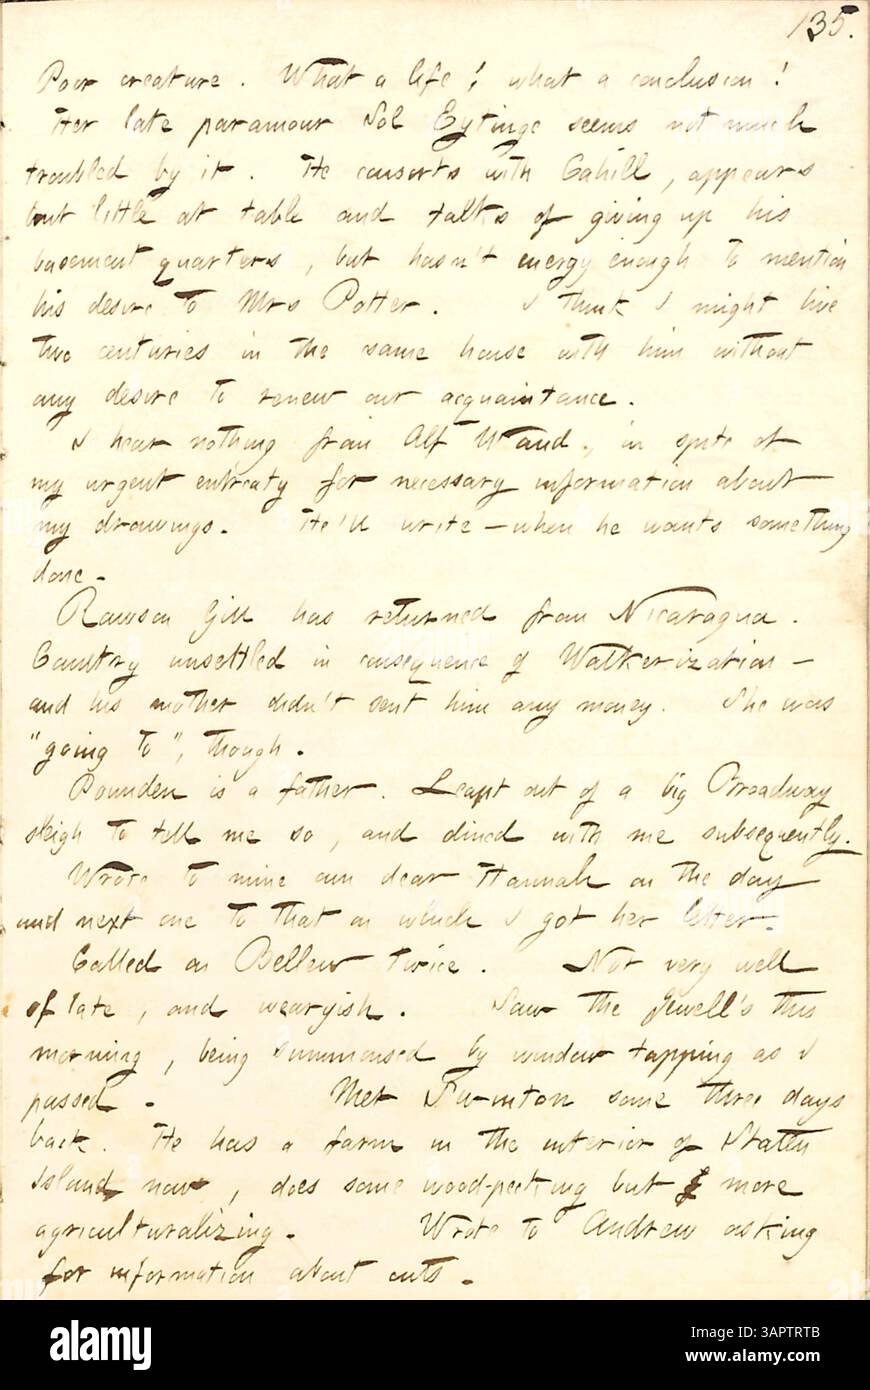 135.
Poor creature. What a life! what a conclusion!
Her late paramour Sol Eytinge seems not much
troubled by it. He consorts with Cahill, appears
but little at table and talks of giving up his
basement quarters, but hasn't energy enough to mention
his desire to Mrs Potter. I think I might live
two centuries in the same house with him without
any desire to renew our acquaintance.
I hear nothing from Alf Waud, in spite of
my urgent entreaty for necessary information about
my drawings. He'll write — when he wants something
done.
Rawson Gill has returned from Nicaragua.
Country unsettled in consequence of Walkerization —
and his mother didn't sent him any money. She was
"going to", though.
Pounden is a father. Leapt out of a big Broadway
sleigh to tell me so, and dined with me subsequently.
Wrote to mine own dear Hannah on the day
and next one to that on which I got her letter.
Called on Bellew twice. Not very well
of late, and wearyish. Saw the Jewell's this
morning, being summonsed by window tapping as I
passed. Met Swinton some three days
back. He has a farm in the interior of Staten
Island now, does some wood-pecking but more
agriculturalizing. Wrote to Andrew asking
for information about cuts.
alamy
Image ID: 3APTRTB
www.alamy.com